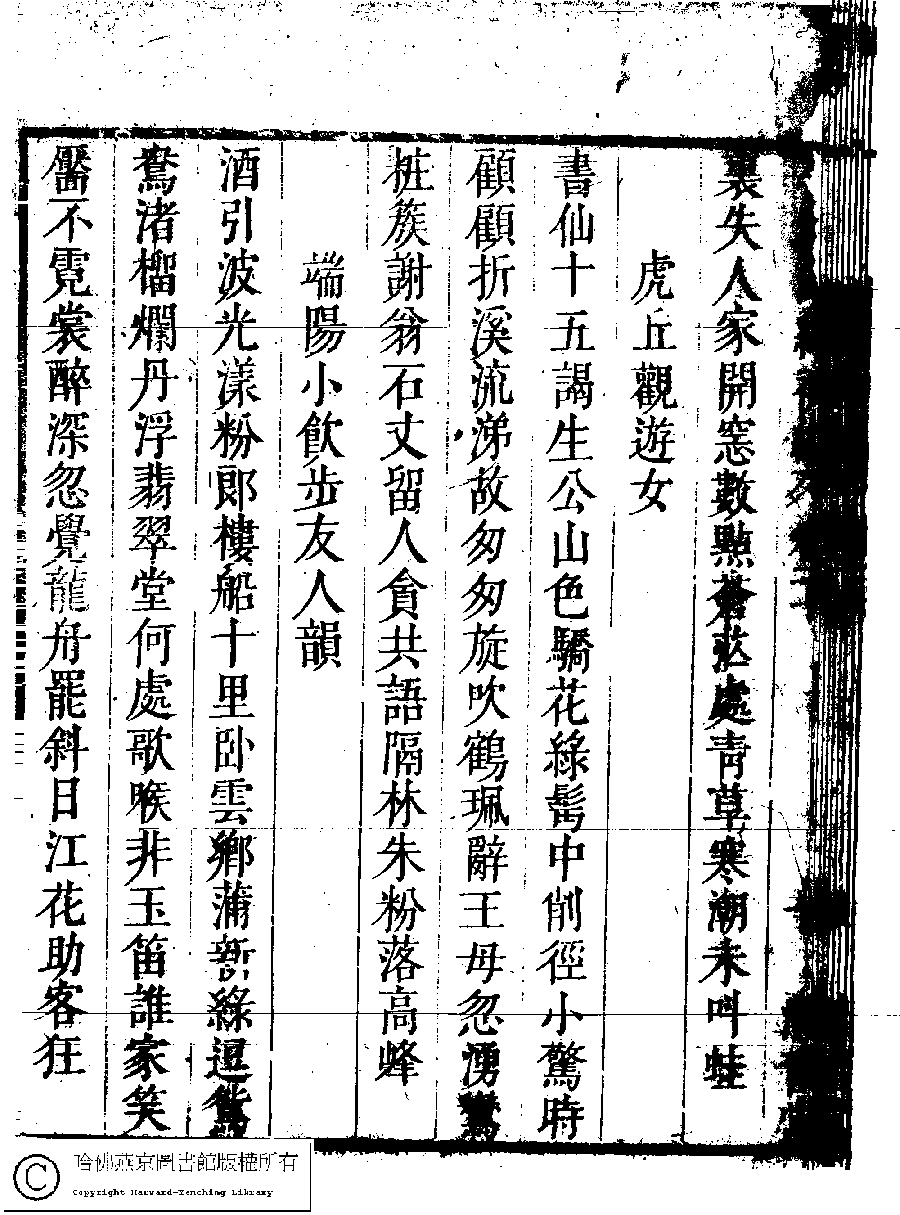 裏失人家開窓數點蒼茫處青草寒潮未叫蛙
虎丘觀遊女
書仙十五謁生公山色驕花綠髩中削徑小驚時
顧顧折溪流涕故匆匆旋吹鶴珮辭王母忽湧鸞
粧簇謝翁石丈留人貪共語隔林朱粉落高蜂
端陽小飮步友人韻
酒引波光漾粉郎樓船十里卧雲鄉蒲新綠逗鴛
鴦渚榴爛丹浮翡翠堂何處歌喉非玉笛誰家笑
靨不霓裳醉深忽覺龍舟罷斜日江花助客狂
哈佛燕京圖書館版權所有
Copyright Harvard-Yenching Library